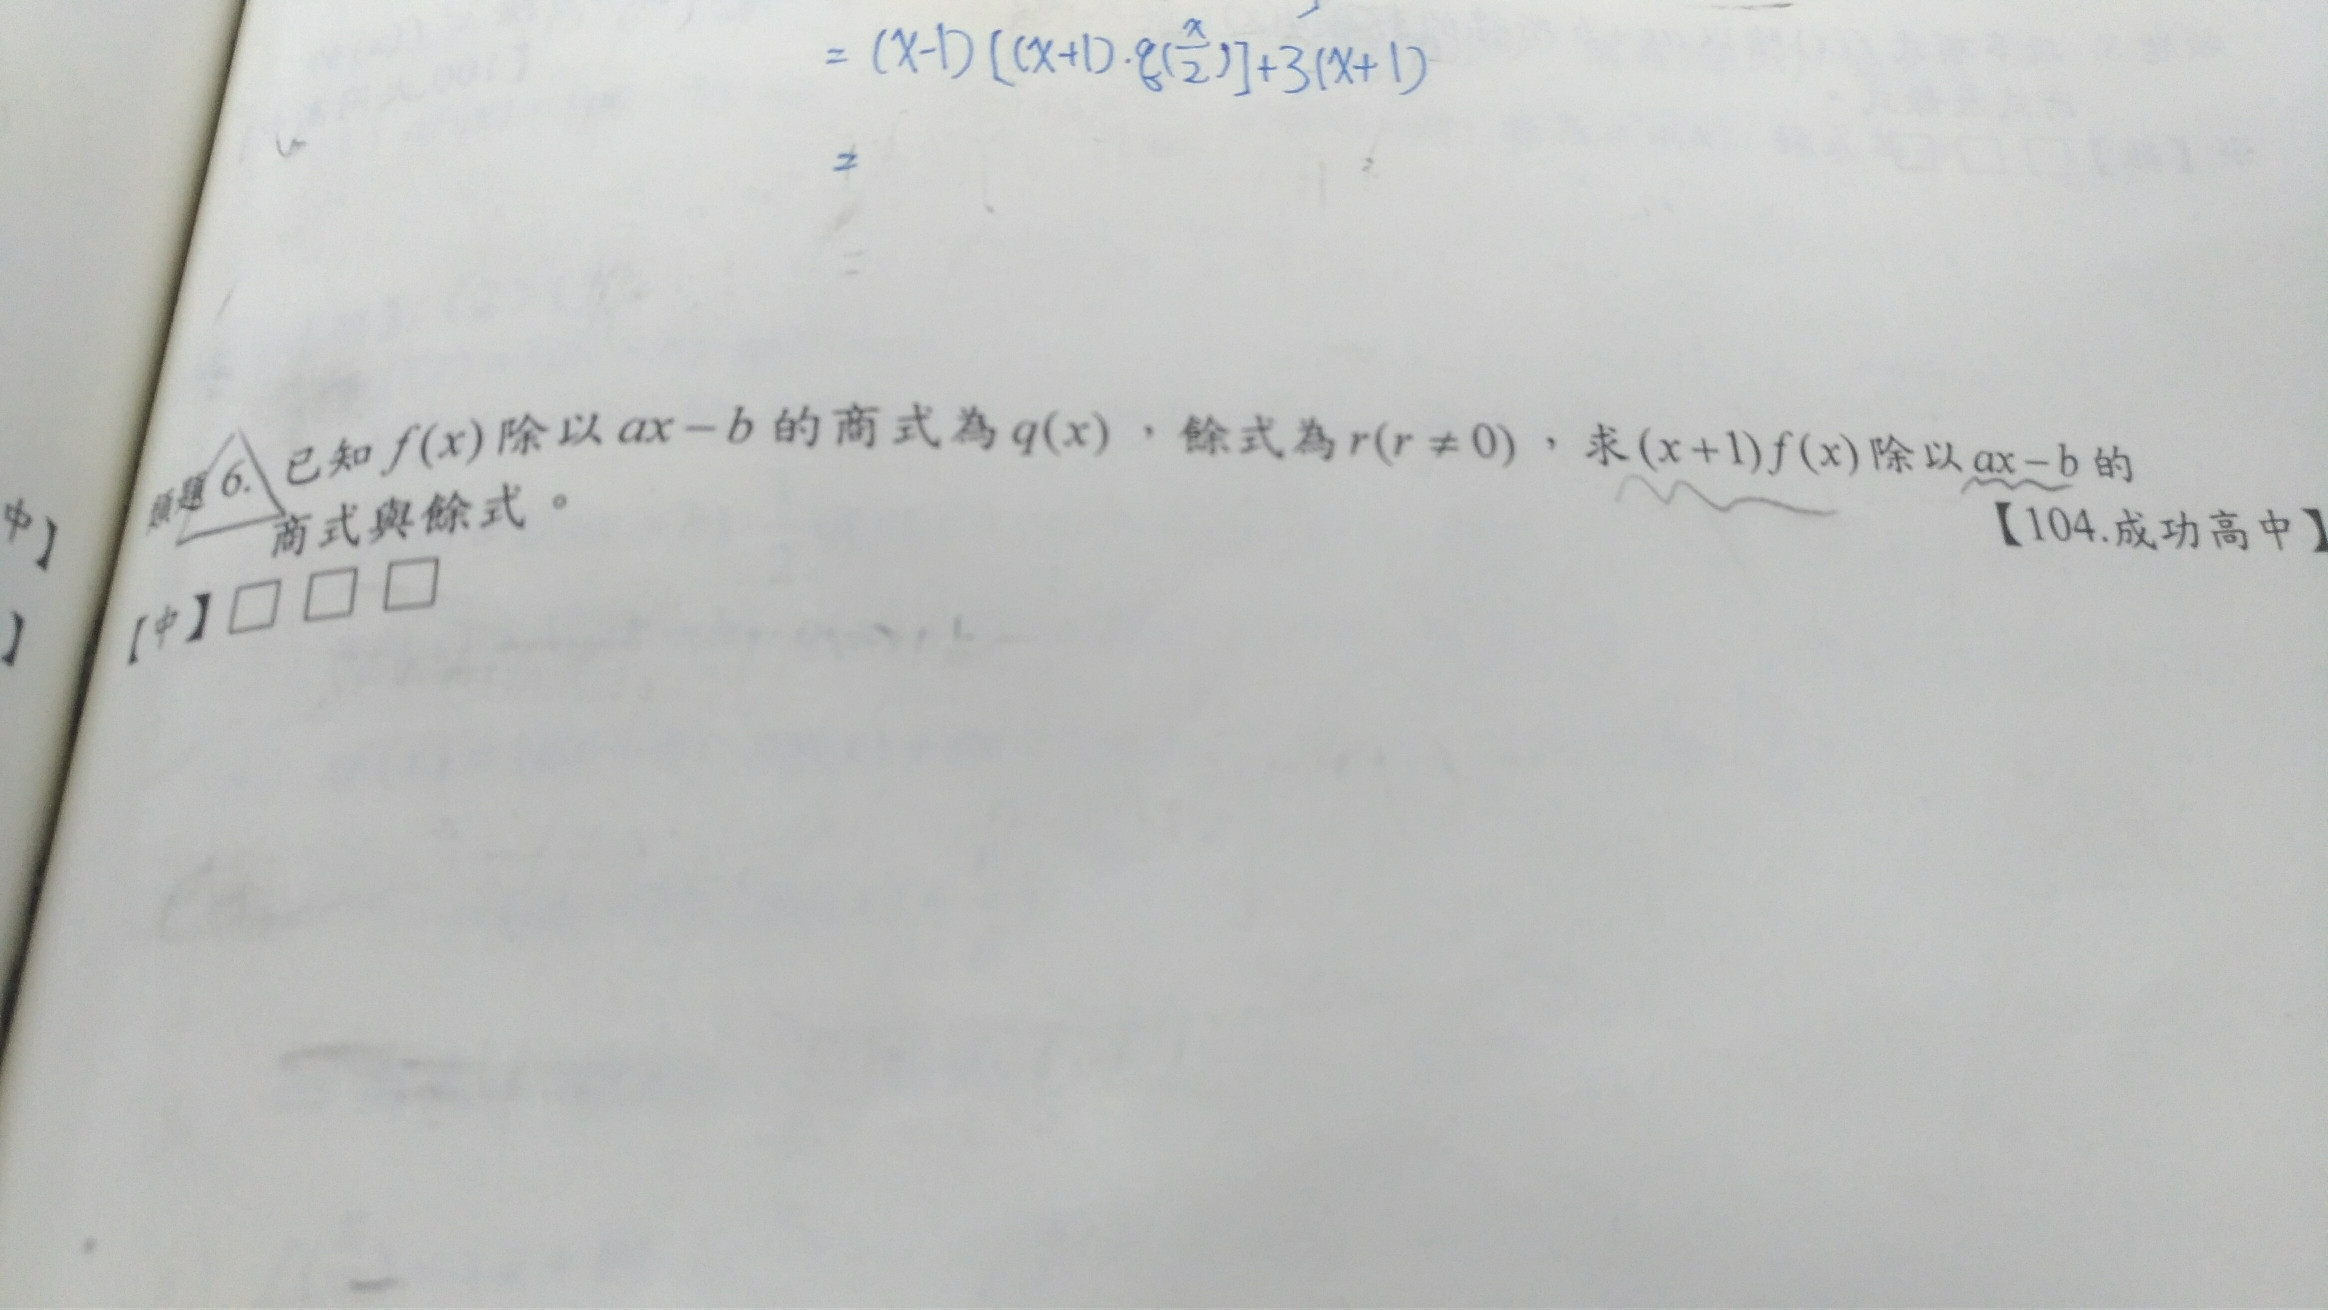 = (x-1)[(x+1)·q(x/2)]+3(x+1)
=
=
類題 6. 已知 f(x) 除以 ax-b 的商式為 q(x)，餘式為 r(r≠0)，求 (x+1)f(x) 除以 ax-b 的
商式與餘式。
【104.成功高中】
【中】□□□
中】
】